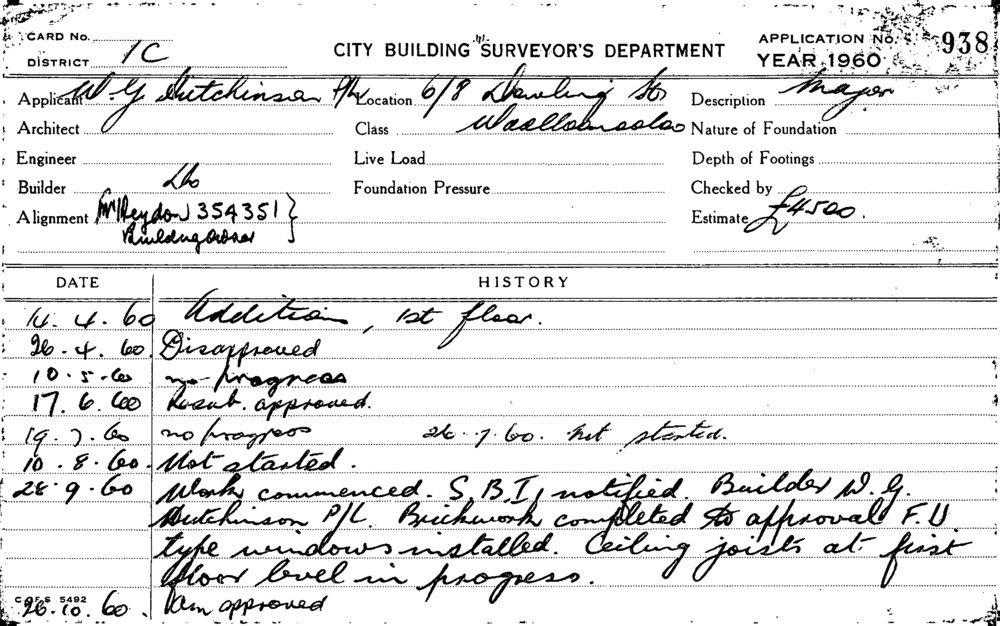 CARD No.
DISTRICT 1C
CITY BUILDING SURVEYOR'S DEPARTMENT
APPLICATION No. 938
YEAR 1960
Applicant W. G. Hutchinson P/L Location 6/8 Dowling St Description Major
Architect Class Woolloomooloo Nature of Foundation
Engineer Live Load Depth of Footings
Builder Do Foundation Pressure Checked by
Alignment Mr Heydon 354351 Estimate £4500.
Building Owner
DATE HISTORY
14. 4. 60 Additions, 1st floor.
26. 4. 60. Disapproved
10. 5. 60 no progress
17. 6. 60 Resub. approved.
19. 7. 60 no progress 26. 7. 60. Not started.
10. 8. 60. Not started.
28. 9. 60 Work commenced. S.B.I. notified. Builder W. G.
Hutchinson P/L. Brickwork completed to approval F.U.
type windows installed. Ceiling joists at first
floor level in progress.
5492
26. 10. 60. Am approved